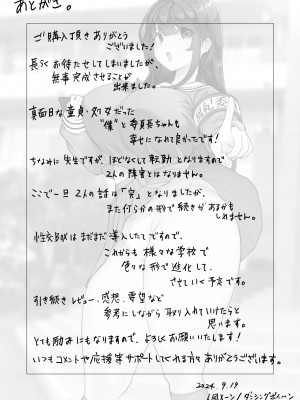 あとがき。
ご購入頂きありがとう
ございました！
長らくお待たせしてしまいましたが、
無事完成させることが
出来ました。
真面目な童貞・処女だった
“僕”と委員長ちゃんも
幸せになれて良かったです！
ちなみに先生ですが、ほどなくして転勤となりますので
2人の障害とはなりません。
ここで一旦2人の話は「完」となりましたが、
また何らかの形で続きがあるかも
しれません。
まだまだ導入したてですので、
これからも様々な学校で
色々な形で進化して、
させていく予定です。
引き続きレビュー、感想、要望など
参考にしながら取り入れていけたらと
思います。
とても励みにもなりますので、よろしくお願いします！
いつもコメントや応援等サポートしてくれる方々ありがとうございます。
2024.9.19